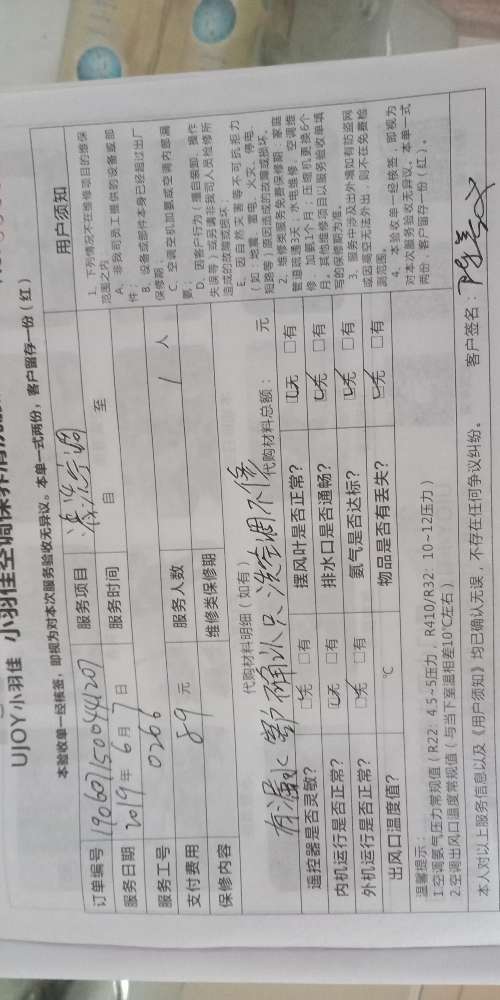 UJOY小羽佳 小羽佳空调保养
本验收单一经核签，即视为对本次服务验收无异议。本单一式两份，客户留存一份（红）
订单编号 190607150044120 服务项目 清洗空调
服务日期 2019年6月7日 服务时间 至
服务工号 0266
支付费用 89 元 服务人数 1 人
保修内容 维修类保修期
代购材料明细（如有） 代购材料总额： 元
有漏水 确认只洗空调不修
遥控器是否灵敏？ □无 □有 摆风叶是否正常？ □无 □有
内机运行是否正常？ □无 □有 排水口是否通畅？ □无 □有
外机运行是否正常？ □无 □有 氨气是否达标？ □无 □有
出风口温度值？ ℃ 物品是否有丢失？ □无 □有
温馨提示：
1.空调氨气压力常规值（R22：4.5~5压力，R410/R32：10~12压力）
2.空调出风口温度常规值（与当下室温相差10℃左右）
本人对以上服务信息以及《用户须知》均已确认无误，不存在任何争议纠纷。 客户签名：
用户须知
1、下列情况不在维修项目的维保
范围之内
A、非我司员工提供的设备或部
件；
B、设备或部件本身已经超过出厂
保修期；
C、空调空机加氨或空调内部漏
氨；
D、因客户行为（擅自装卸、操作
失误等）或另请非我司人员检修所
造成的故障或损坏。
E、因自然灾害等不可抗拒力
（如：地震、雷电、火灾、停电、
短路等）原因造成的故障或损坏。
2、维修类服务免费保修期：家庭
管道疏通3天，水电维修、空调维
修、加氨1个月；压缩机更换6个
月。其他维修项目以服务验收单填
写的保修期为准。
3、服务中涉及出外墙如有防盗网
或因悬空无法外出，则不在免费检
测范围。
4、本验收单一经核签，即视为
对本次服务验收无异议。本单一式
两份，客户留存一份（红）。